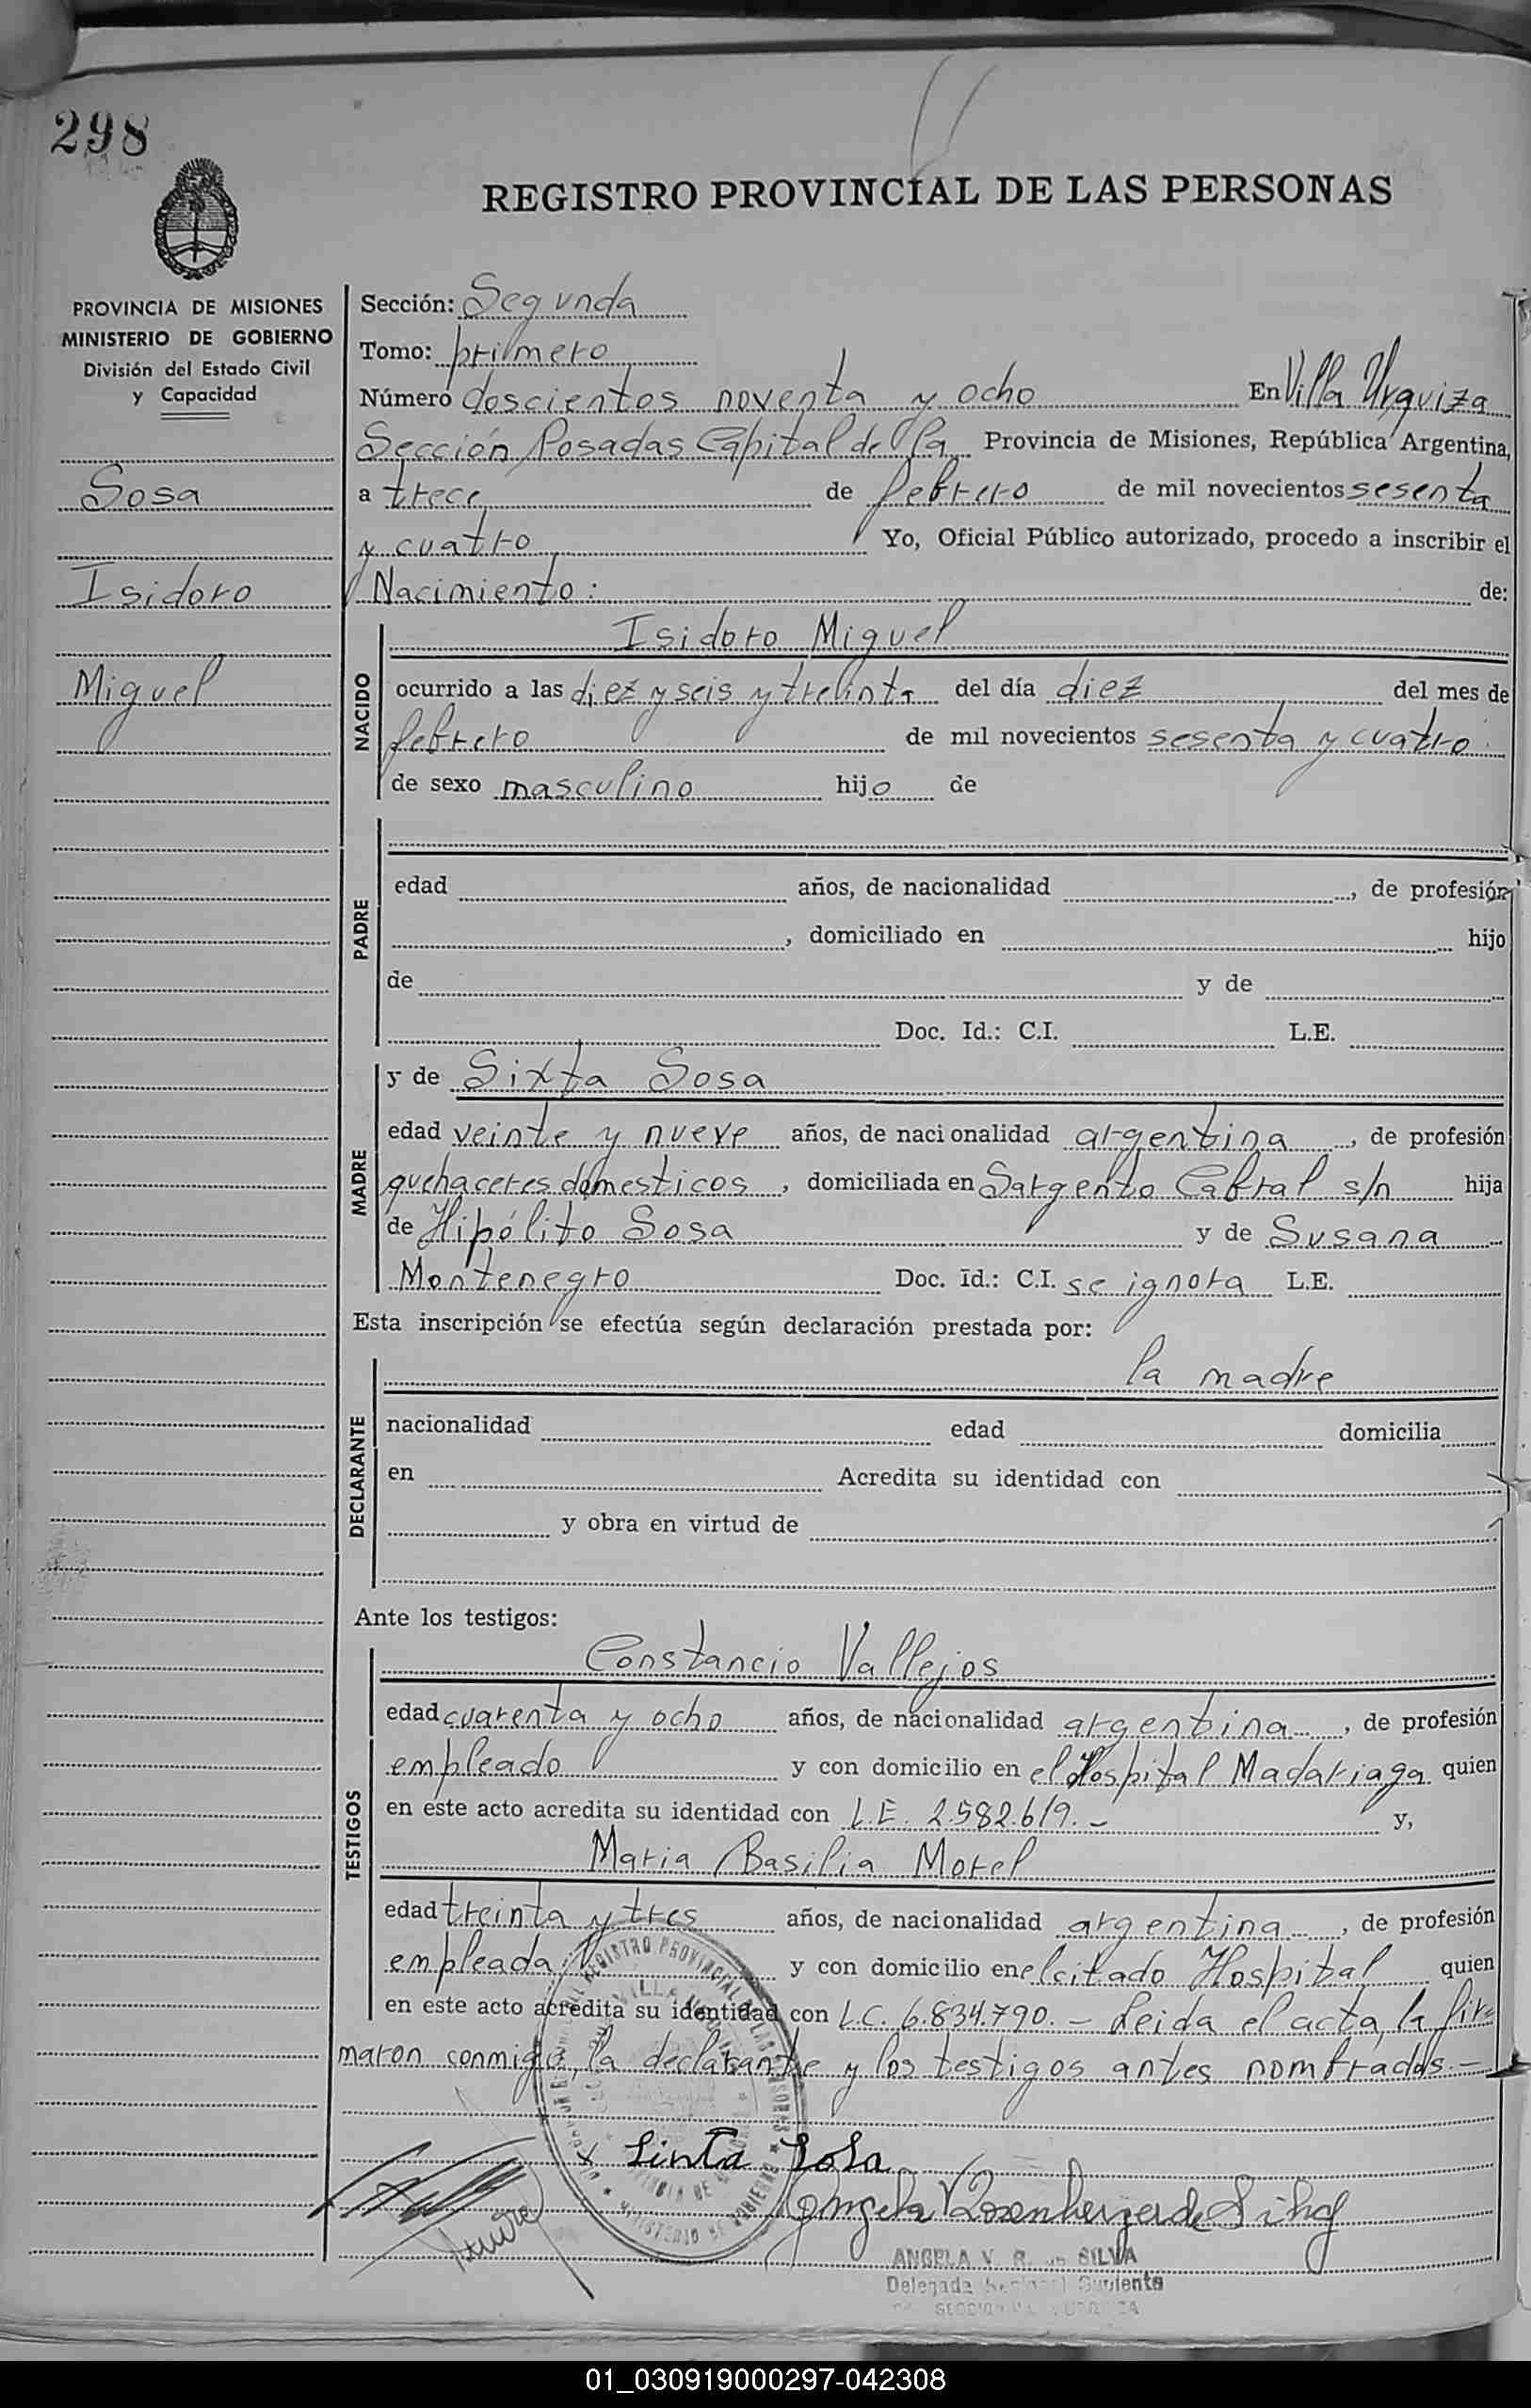 298
REGISTRO PROVINCIAL DE LAS PERSONAS
PROVINCIA DE MISIONES
MINISTERIO DE GOBIERNO
División del Estado Civil
y Capacidad
Sosa
Isidoro
Miguel
Sección: Segunda
Tomo: primero
Número doscientos noventa y ocho En Villa Urquiza
Sección Posadas Capital de la Provincia de Misiones, República Argentina,
a trece de febrero de mil novecientos sesenta
y cuatro Yo, Oficial Público autorizado, procedo a inscribir el
Nacimiento: de:
NACIDO
Isidoro Miguel
ocurrido a las diez y seis y treinta del día diez del mes de
febrero de mil novecientos sesenta y cuatro
de sexo masculino hijo de
PADRE
edad años, de nacionalidad , de profesión
, domiciliado en hijo
de y de
Doc. Id.: C.I. L.E.
MADRE
y de Sixta Sosa
edad veinte y nueve años, de nacionalidad argentina, de profesión
quehaceres domesticos, domiciliada en Sargento Cabral s/n hija
de Hipólito Sosa y de Susana
Montenegro Doc. Id.: C.I. se ignora L.E.
Esta inscripción se efectúa según declaración prestada por:
DECLARANTE
la madre
nacionalidad edad domicilia
en Acredita su identidad con
y obra en virtud de
Ante los testigos:
TESTIGOS
Constancio Vallejos
edad cuarenta y ocho años, de nacionalidad argentina, de profesión
empleado y con domicilio en el Hospital Madariaga quien
en este acto acredita su identidad con L.E. 2.582.619.- y,
Maria Basilia Morel
edad treinta y tres años, de nacionalidad argentina, de profesión
empleada y con domicilio en el citado Hospital quien
en este acto acredita su identidad con L.C. 6.834.790.- Leida el acta, la fir-
maron conmigo, la declarante y los testigos antes nombrados.-
x Sinta Sosa
Angela V. Rosenherger de Silva
ANGELA V. R. de SILVA
Delegada Suplente
01_030919000297-042308